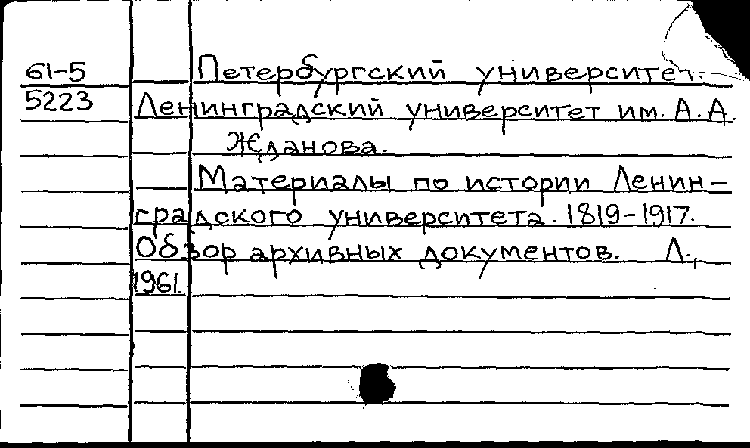 61-5 Петербургский университет.
5223 Ленинградский университет им. А.А.
Жданова.
Материалы по истории Ленин-
градского университета. 1819-1917.
Обзор архивных документов. Л.,
1961.